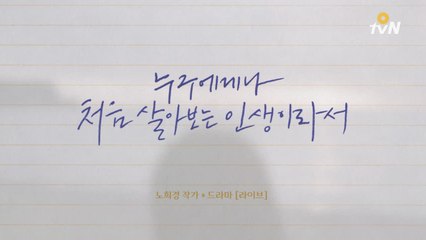 tvN
누구에게나
처음 살아보는 인생이라서
노희경 작가 • 드라마 [라이브]